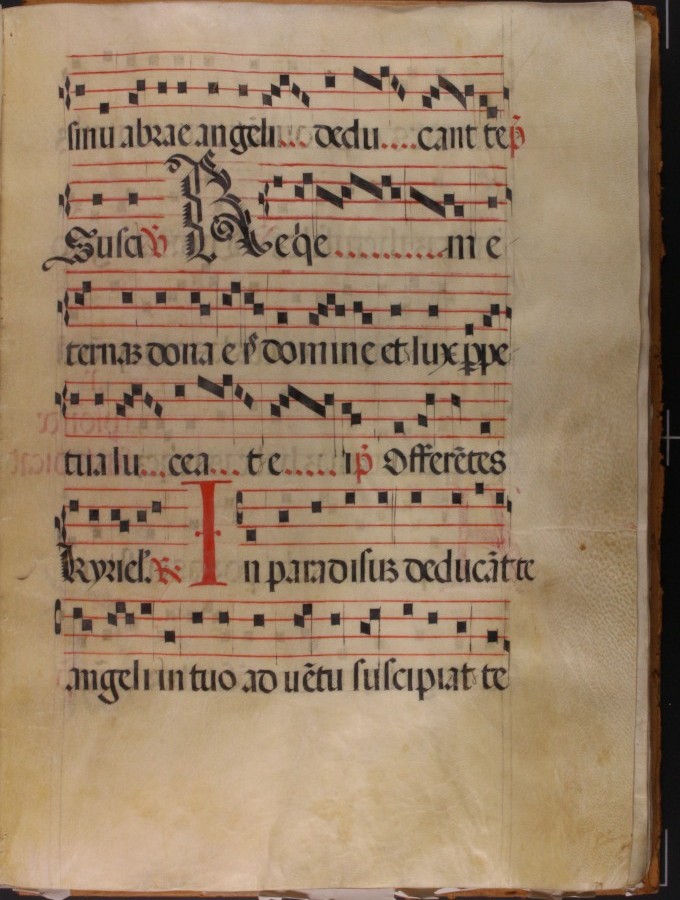 sinu abrae angeli... dedu....cant te p̄
Susci ℣ Reqe...........m e
ternaz dona eis domine et lux ꝑpe
tua lu...cea...te......i p̄ Offerētes
kyriel. ℞ In paradisuz deducāt te
angeli in tuo ad uētu suscipiat te